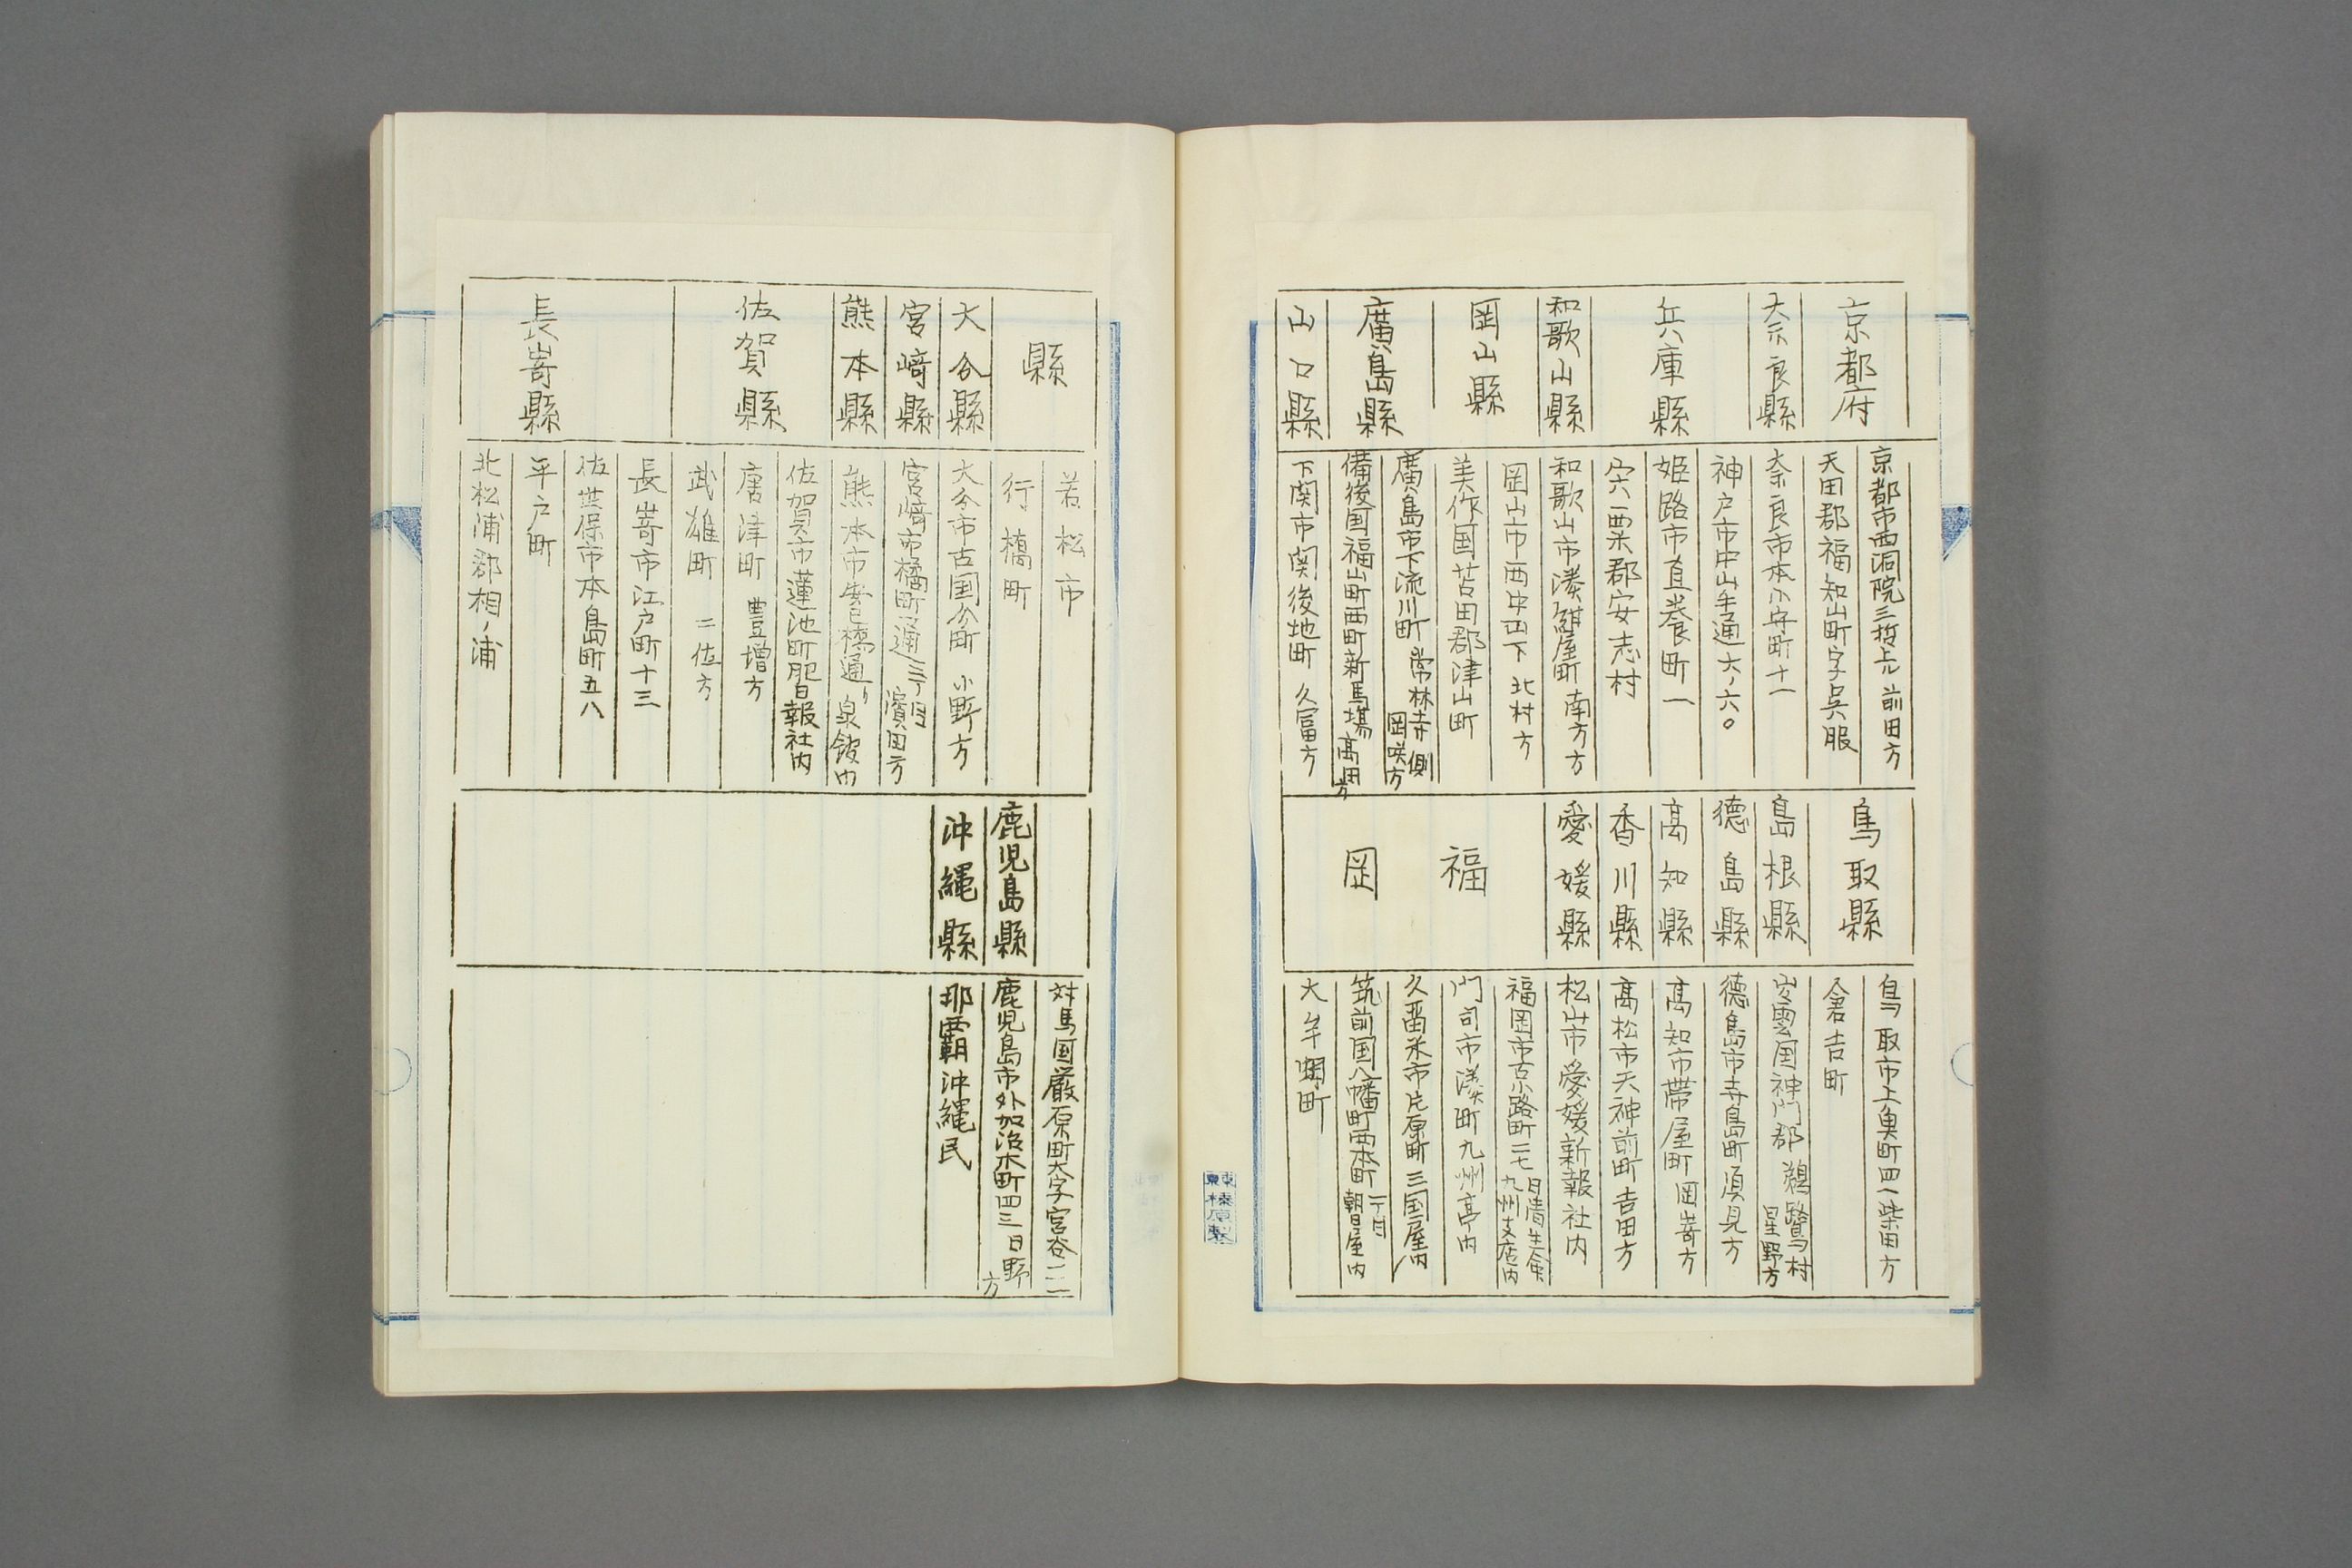 京都府
京都市西洞院三哲上ル 前田方
天田郡福知山町字呉服
奈良縣
奈良市本小守町十一
兵庫縣
神戸市中山手通六ノ六〇
姫路市直養町一
宍粟郡安志村
和歌山縣
和歌山市湊紺屋町 南方方
岡山縣
岡山市西中山下 北村方
美作国苫田郡津山町
廣島縣
廣島市下流川町 常林寺側 岡咲方
備後国福山町西町新馬場 髙田方
山口縣
下関市関後地町 久冨方
鳥取縣
鳥取市上魚町四一柴田方
倉吉町
島根縣
出雲国神門郡 鵜鷺村 星野方
徳島縣
徳島市寺島町須見方
髙知縣
髙知市帯屋町 岡嵜方
香川縣
髙松市天神前町吉田方
愛媛縣
松山市愛媛新報社内
福岡
福岡市古小路町二七 日清生命九州支店内
門司市湊町九州亭内
久畱米市片原町三国屋内
筑前国八幡町西本町 一丁目 朝日屋内
大牟田町
縣
若松市
行橋町
大分縣
大分市古国分町 小野方
宮﨑縣
宮﨑市橘町通三丁目 濱田方
熊本縣
熊本市安巳橋通リ 泉舘内
佐賀縣
佐賀市蓮池町肥日報社内
唐津町 豊増方
武雄町 二位方
長嵜縣
長嵜市江戸町十三
佐世保市本島町五八
平戸町
北松浦郡相ノ浦
対馬国厳原町大字宮谷一二一
鹿児島縣
鹿児島市外加治木町四三 日野方
沖縄縣
那覇沖縄民
東京榛原製